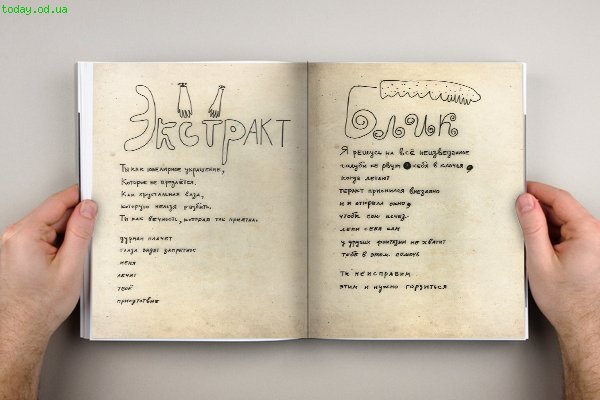 today.od.ua
Экстракт
Ты как ювелирное украшение,
Которое не продаётся.
Как хрустальная ваза,
которую нельзя разбить.
Ты как вечность, которая так приятна.
дурман плачет
глаза видят запретное
меня
лечит
твоё
присутствие
Блик
Я решусь на всё неизведанное
голуби не рвут себя в клочья,
когда летают
теракт приснился внезапно
и я открыла окно,
чтобы сон исчез.
лепи себя сам
у других фантазии не хватит
тебе в этом помочь
ты неисправим
этим и нужно гордиться